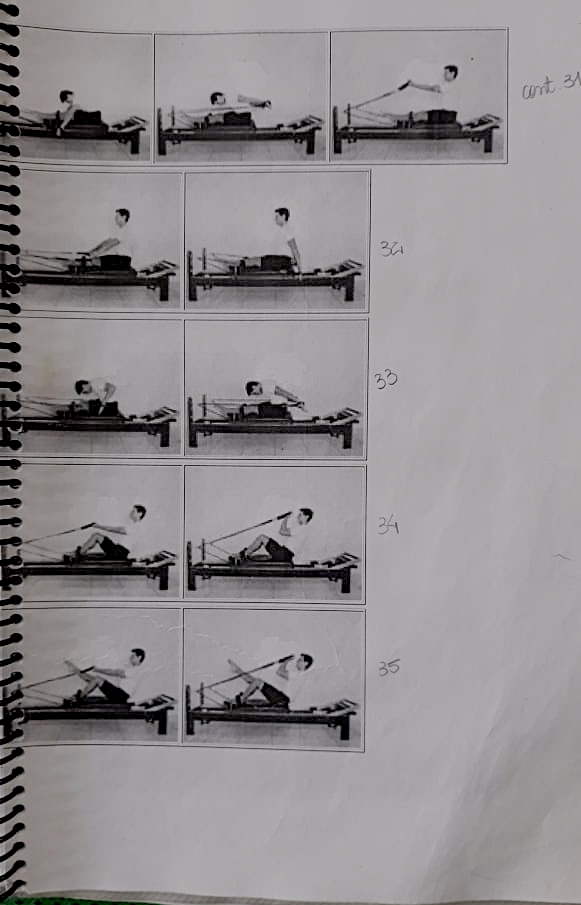 cont. 31
32
33
34
35